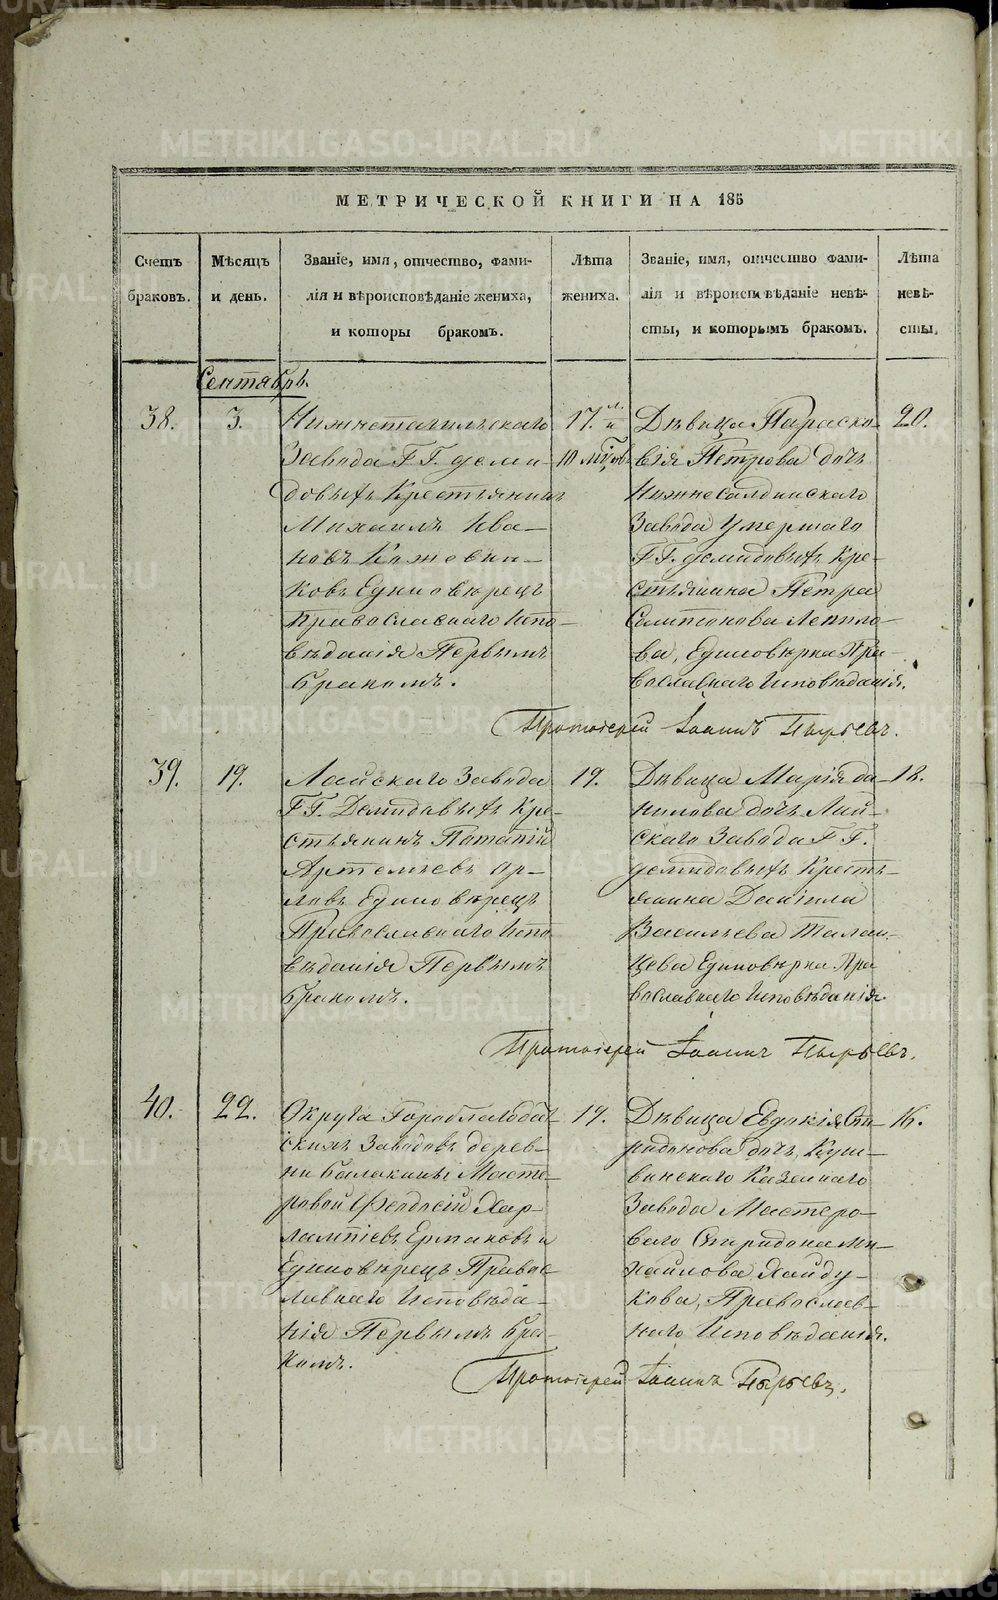 МЕТРИЧЕСКОЙ КНИГИ НА 185
Счетъ браковъ.
Мѣсяцъ и день.
Званіе, имя, отчество, фами-
лія и вѣроисповѣданіе жениха,
и которы бракомъ.
Лѣта жениха.
Званіе, имя, отчество фами-
лія и вѣроиспвѣданіе невѣ-
сты, и которымъ бракомъ.
Лѣта невѣ-
сты.
Сентябрь.
38.
3.
Нижнетагильскаго
Завода Г.Г. Деми-
довыхъ Крестьянинъ
Михаилъ Ива-
новъ Кожевни-
ковъ Единовѣрецъ
Православнаго Испо-
вѣданія Первымъ
бракомъ.
17. л. и
10 мѣсв
Дѣвица Параске-
вія Петрова дочь
Нижнесалдинскаго
Завода умершаго
Г.Г. Демидовыхъ Кре-
стьянина Петра
Сампсонова
ва, Единовѣрка Пра-
вославнаго Исповѣданія.
20.
Протоіерей Іоаннъ Пырьевъ.
39.
19.
Лайскаго Завода
Г.Г. Демидовыхъ Кре-
стьянинъ Потапій
Артемьевъ Ор-
ловъ Единовѣрецъ
Православнаго Испо-
вѣданія Первымъ
бракомъ.
19.
Дѣвица Марія Да-
нилова дочь Лай-
скаго Завода Г.Г.
Демидовыхъ Кресть-
янина Даніила
Васильева Талан-
цева Единовѣрка Пра
вославнаго Исповѣданія.
18.
Протоіерей Іоаннъ Пырьевъ.
40.
22.
Округа Гороблагодат-
скихъ Заводовъ дерев-
ни Балакиной Масте-
ровой Феодосій Хар-
лампіевъ Ермаковъ
Единовѣрецъ Правос-
лавнаго Исповѣда-
нія Первымъ бра-
комъ.
19.
Дѣвица Евдокія Спи-
ридонова дочь, Куш-
винскаго Казеннаго
Завода Мастеро-
ваго Спиридона Ми-
хайлова Хайду-
кова, Православ-
наго Исповѣданія.
16.
Протоіерей Іоаннъ Пырьевъ.
METRIKI.GASO-URAL.RU